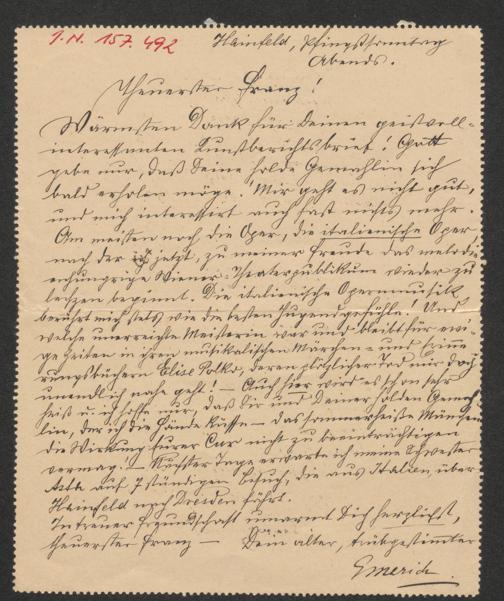 I.N. 157.492
Hainfeld, Pfingstsonntag
Abends.
Theuerster Franz!
Wärmsten Dank für Deinen geistvoll-
interessanten Kunstberichtsbrief! Gott
gebe nur, daß Deine holde Gemahlin sich
bald erholen möge. Mir geht es nicht gut,
und mich interessirt auch fast nichts mehr.
Am meisten noch die Oper, die italienische Oper
nach der jetzt, zu meiner Freude das melodie-
hungrige Wiener-Theaterpublikum wieder zu
lechzen beginnt. Die italienische Opernmusik
berührt mich stets wie die besten Jugendgefühle. Und
welche unerreichte Meisterin war und bleibt für ewi-
ge Zeiten in ihren musikalischen Märchen- und Erinne-
rungsbüchern Elise Polko, deren plötzlicher Tod mir doch
unendlich nahe geht! — Auch hier wird es schon sehr
heiß u. ich hoffe nur, daß Dir und Deiner holden Gemah-
lin, der ich die Hände küsse — das sommerheiße München
die Wirkung Eurer Cur nicht zu beeinträchtigen
vermag. — Nächster Tage erwarte ich meine Schwester
Asta auf 7stündigen Besuch, die aus Italien, über
Hainfeld nach Dresden fährt.
In treuer Freundschaft umarmt Dich herzlichst,
theuerster Franz — Dein alter, trübgestimmter
Emerich.